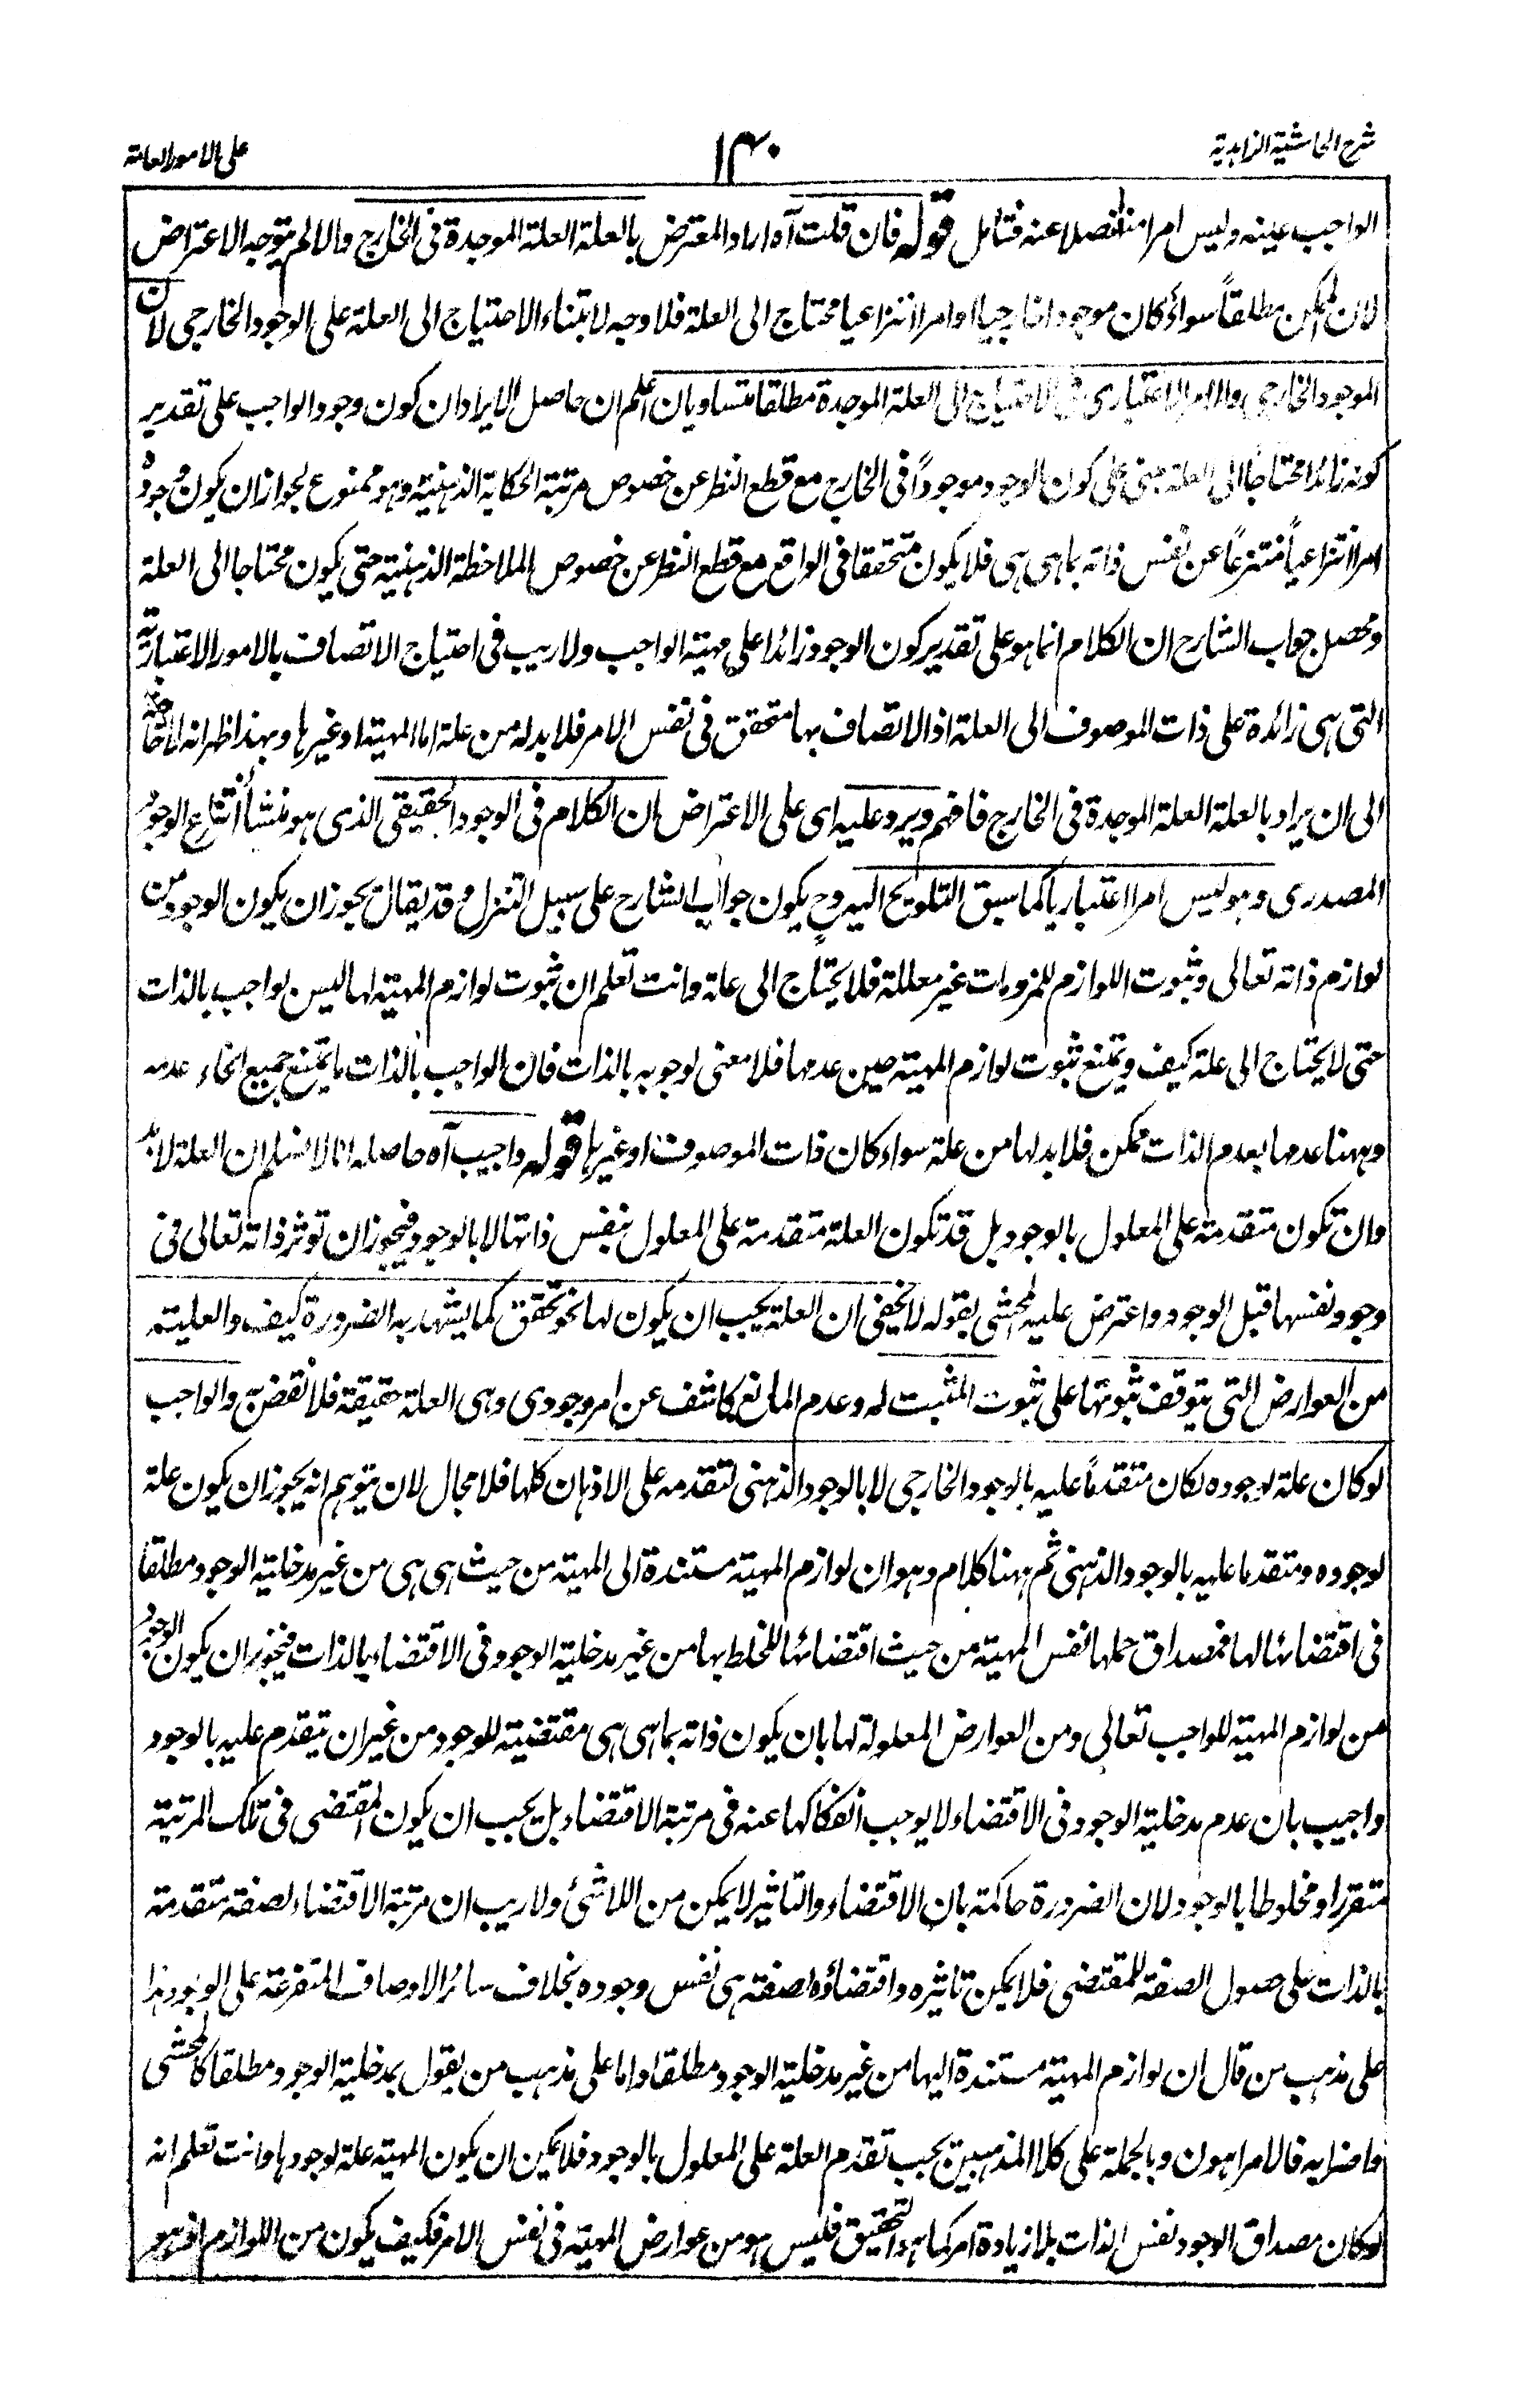 شرح الحاشية الزاهدية
۱۴۰
على الامور العامة
الواجب عينه وليس امرا منفصلا عنه فتامل قوله فان قلت آه اراد المعترض بالعلة العلة الموجدة فى الخارج والا لم يتوجه الاعتراض
لان الممكن مطلقاً سواءً كان موجودا خارجيا او امرا انتزاعيا محتاج الى العلة فلا وجه لابتناء الاحتياج الى العلة على الوجود الخارجى لان
الموجود الخارجى والامر الاعتبارى فى الاحتياج الى العلة الموجدة مطلقا متساويان اعلم ان حاصل الايراد ان كون وجود الواجب على تقدير
كونه زائدا محتاجًا الى العلة مبنى على كون الوجود موجوداً فى الخارج مع قطع النظر عن خصوص مرتبة الحكاية الذهنية وهو ممنوع لجواز ان يكون وجوده
امرا انتزاعياً منتزعاً عن نفس ذاته بما هى هى فلا يكون متحققا فى الواقع مع قطع النظر عن خصوص الملاحظة الذهنية حتى يكون محتاجا الى العلة
ومحصل جواب الشارح ان الكلام انما هو على تقدير كون الوجود زائدا على مهية الواجب ولا ريب فى احتياج الاتصاف بالامور الاعتبارية
التى هى زائدة على ذات الموصوف الى العلة اذ الاتصاف بها متحقق فى نفس الامر فلا بد له من علة اما المهية او غيرها وبهذا ظهر انه لا حاجة
الى ان يراد بالعلة العلة الموجدة فى الخارج فافهم ويرد عليه اى على الاعتراض ان الكلام فى الوجود الحقيقى الذى هو منشأ انتزاع الوجود
المصدرى وهو ليس امرا اعتباريا كما سبق التلويح اليه وح يكون جواب الشارح على سبيل التنزل وقد يقال يجوز ان يكون الوجود من
لوازم ذاته تعالى وثبوت اللوازم للملزومات غير معللة فلا يحتاج الى علة وانت تعلم ان ثبوت لوازم المهية لها ليس بواجب بالذات
حتى لا يحتاج الى علة كيف ويمتنع ثبوت لوازم المهية حين عدمها فلا معنى لوجوبه بالذات فان الواجب بالذات ما يمتنع جميع انحاء عدمه
وههنا عدمها بعدم الذات ممكن فلا بد لها من علة سواء كان ذات الموصوف او غيرها قوله واجيب آه حاصله انا لا نسلم ان العلة لا بد
وان تكون متقدمة على المعلول بالوجود بل قد تكون العلة متقدمة على المعلول بنفس ذاتها لا بالوجود فيجوز ان توثر ذاته تعالى فى
وجود نفسها قبل الوجود واعترض عليه المحشى بقوله لا يخفى ان العلة يجب ان يكون لها نحو تحقق كما يشهد به الضرورة كيف والعلية
من العوارض التى يتوقف ثبوتها على ثبوت المثبت له وعدم المانع كاشف عن امر وجودى وهى العلة حقيقة فلا نقض به والواجب
لو كان علة لوجوده لكان متقدماً عليه بالوجود الخارجى لا بالوجود الذهنى لتقدمه على الاذهان كلها فلا مجال لان يتوهم انه يجوز ان يكون علة
لوجوده ومتقدما عليه بالوجود الذهنى ثم ههنا كلام وهو ان لوازم المهية مستندة الى المهية من حيث هى هى من غير مدخلية الوجود مطلقا
فى اقتضائها لها فمصداق حملها نفس المهية من حيث اقتضائها للخلط بها من غير مدخلية الوجود فى الاقتضاء بالذات فيجوز ان يكون الوجود
من لوازم المهية للواجب تعالى ومن العوارض المعلولة لها بان يكون ذاته بما هى هى مقتضية للوجود من غير ان يتقدم عليه بالوجود
واجيب بان عدم مدخلية الوجود فى الاقتضاء لا يوجب انفكاكها عنه فى مرتبة الاقتضاء بل يجب ان يكون المقتضى فى تلك المرتبة
متقررا ومخلوطا بالوجود لان الضرورة حاكمة بان الاقتضاء والتاثير لا يمكن من اللاشئ ولا ريب ان مرتبة الاقتضاء لصفة متقدمة
بالذات على حصول الصفة للمقتضى فلا يمكن تاثيره واقتضاؤه لصفة هى نفس وجوده بخلاف سائر الاوصاف المتفرعة على الوجود هذا
على مذهب من قال ان لوازم المهية مستندة اليها من غير مدخلية الوجود مطلقا واما على مذهب من يقول بمدخلية الوجود مطلقا كالمحشى
واضرابه فالامر اهون وبالجملة على كلا المذهبين يجب تقدم العلة على المعلول بالوجود فلا يمكن ان يكون المهية علة لوجودها وانت تعلم انه
لو كان مصداق الوجود نفس الذات بلا زيادة امر كما هو التحقيق فليس هو من عوارض المهية فى نفس الامر فكيف يكون من اللوازم اذ هو